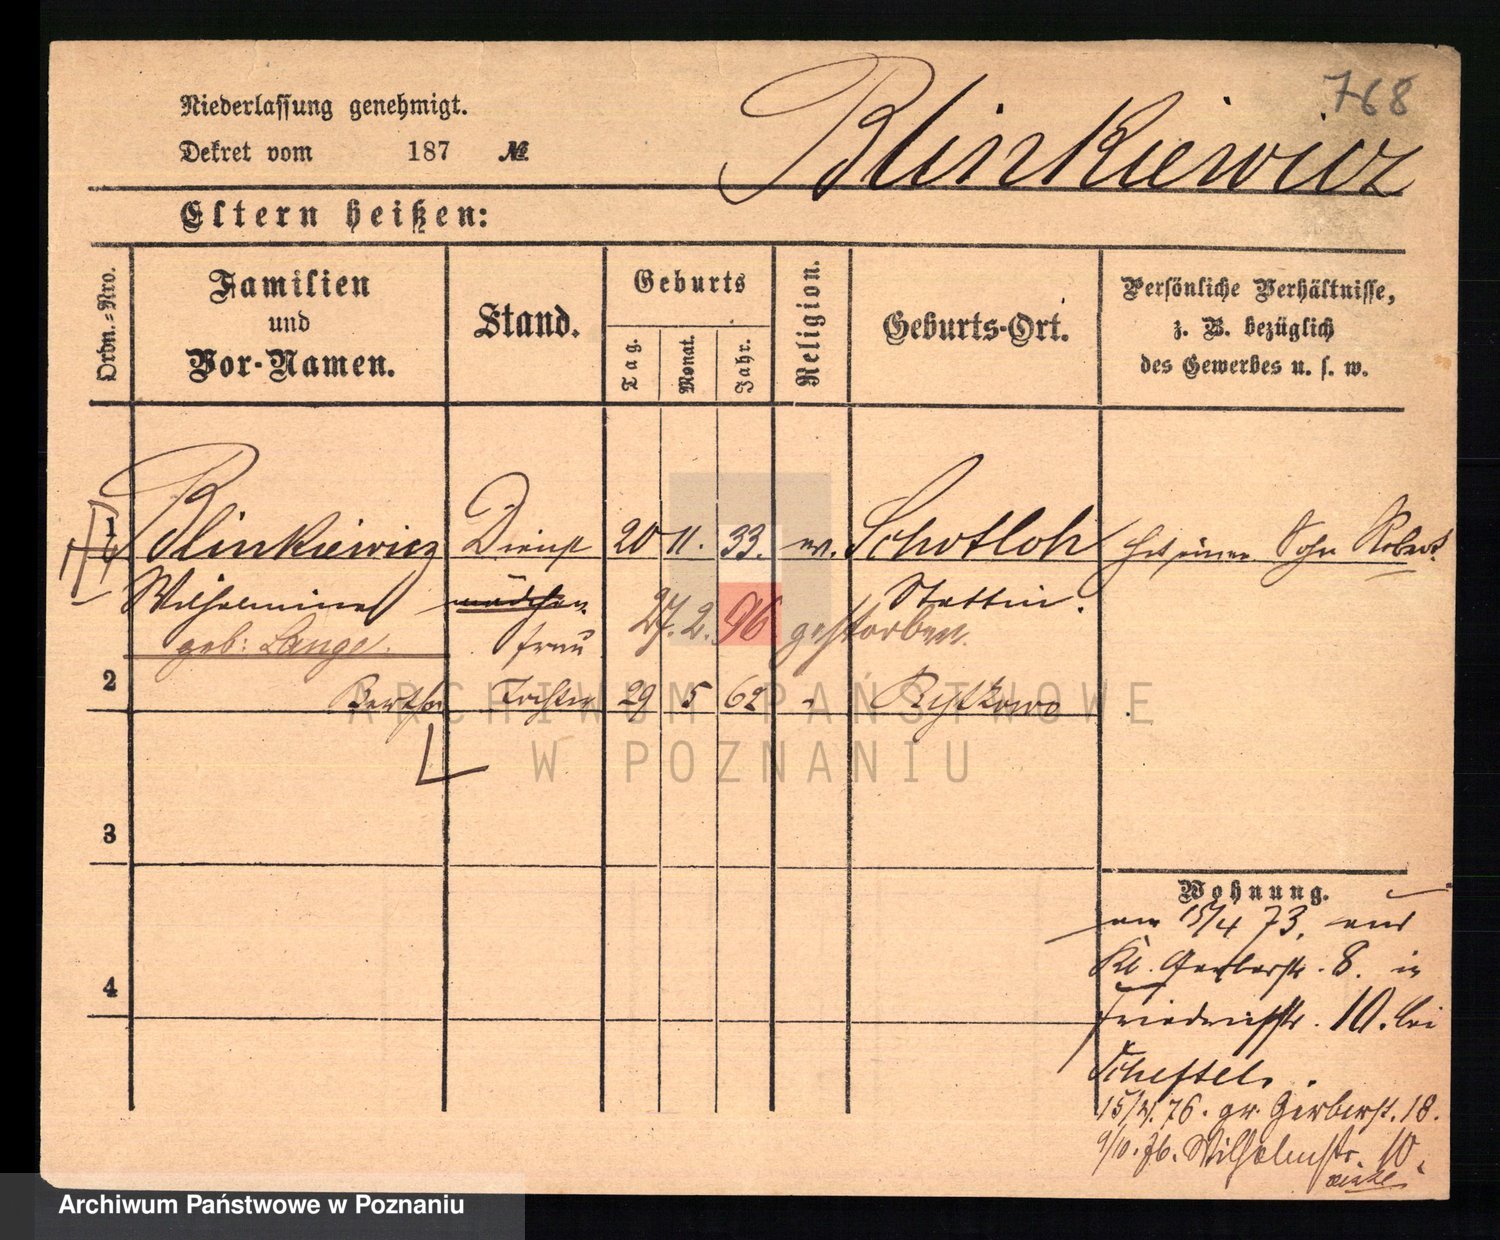 768
Niederlassung genehmigt.
Dekret vom 187 №
Blinkiewicz
Eltern heißen:
Ordn.-Nro.
Familien und Vor-Namen.
Stand.
Geburts
Tag.
Monat.
Jahr.
Religion.
Geburts-Ort.
Persönliche Verhältnisse,
z. B. bezüglich
des Gewerbes u. s. w.
1 Blinkiewicz Dienst 20 11. 33. ev. Schotloh hat einen Sohn Robert
Wilhelmine mädchen Stettin.
27. 2. 96 gestorben.
geb: Lange. frau
2 Bertha Tochter 29 5 62 "
ARCHIWUM PAŃSTWOWE
W POZNANIU
3
4
Wohnung.
am 15/4 73. aus
Kl. Gerberstr. 8. in
Friedrichstr. 10. bei
Scheftel.
15/4. 76. gr. Gerberst. 18.
9/10. 76. Wilhelmstr. 10.
Archiwum Państwowe w Poznaniu